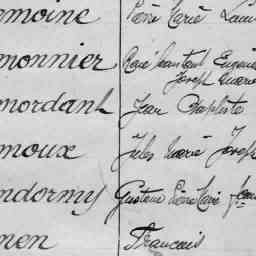 emoine Pierre Marie Louis
monnier René Constant Eugène
Joseph Marie
mordant Jean Baptiste
moux Jules Marie Joseph
ndormy Gustave Pierre Marie
nen Francois